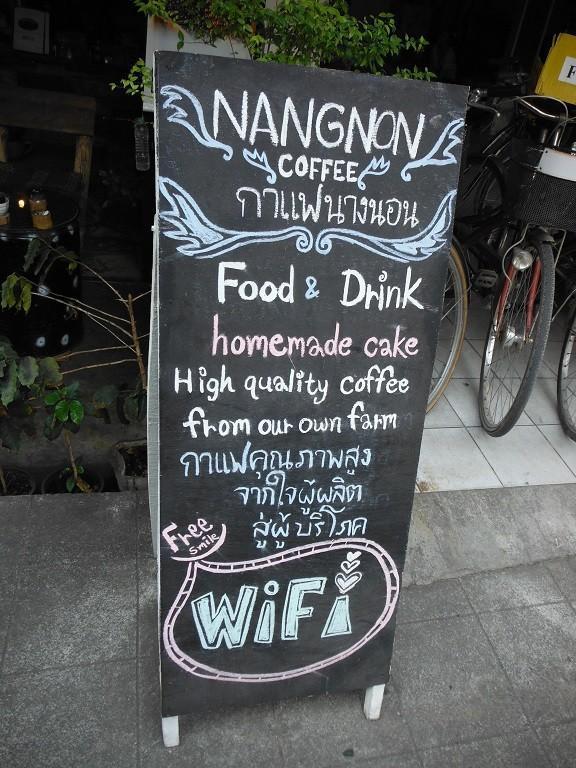 NANGNON
COFFEE
กาแฟนางนอน
Food & Drink
homemade cake
High quality coffee
from our own farm
กาแฟคุณภาพสูง
จากใจผู้ผลิต
สู่ผู้บริโภค
Free
smile
WiFi
F